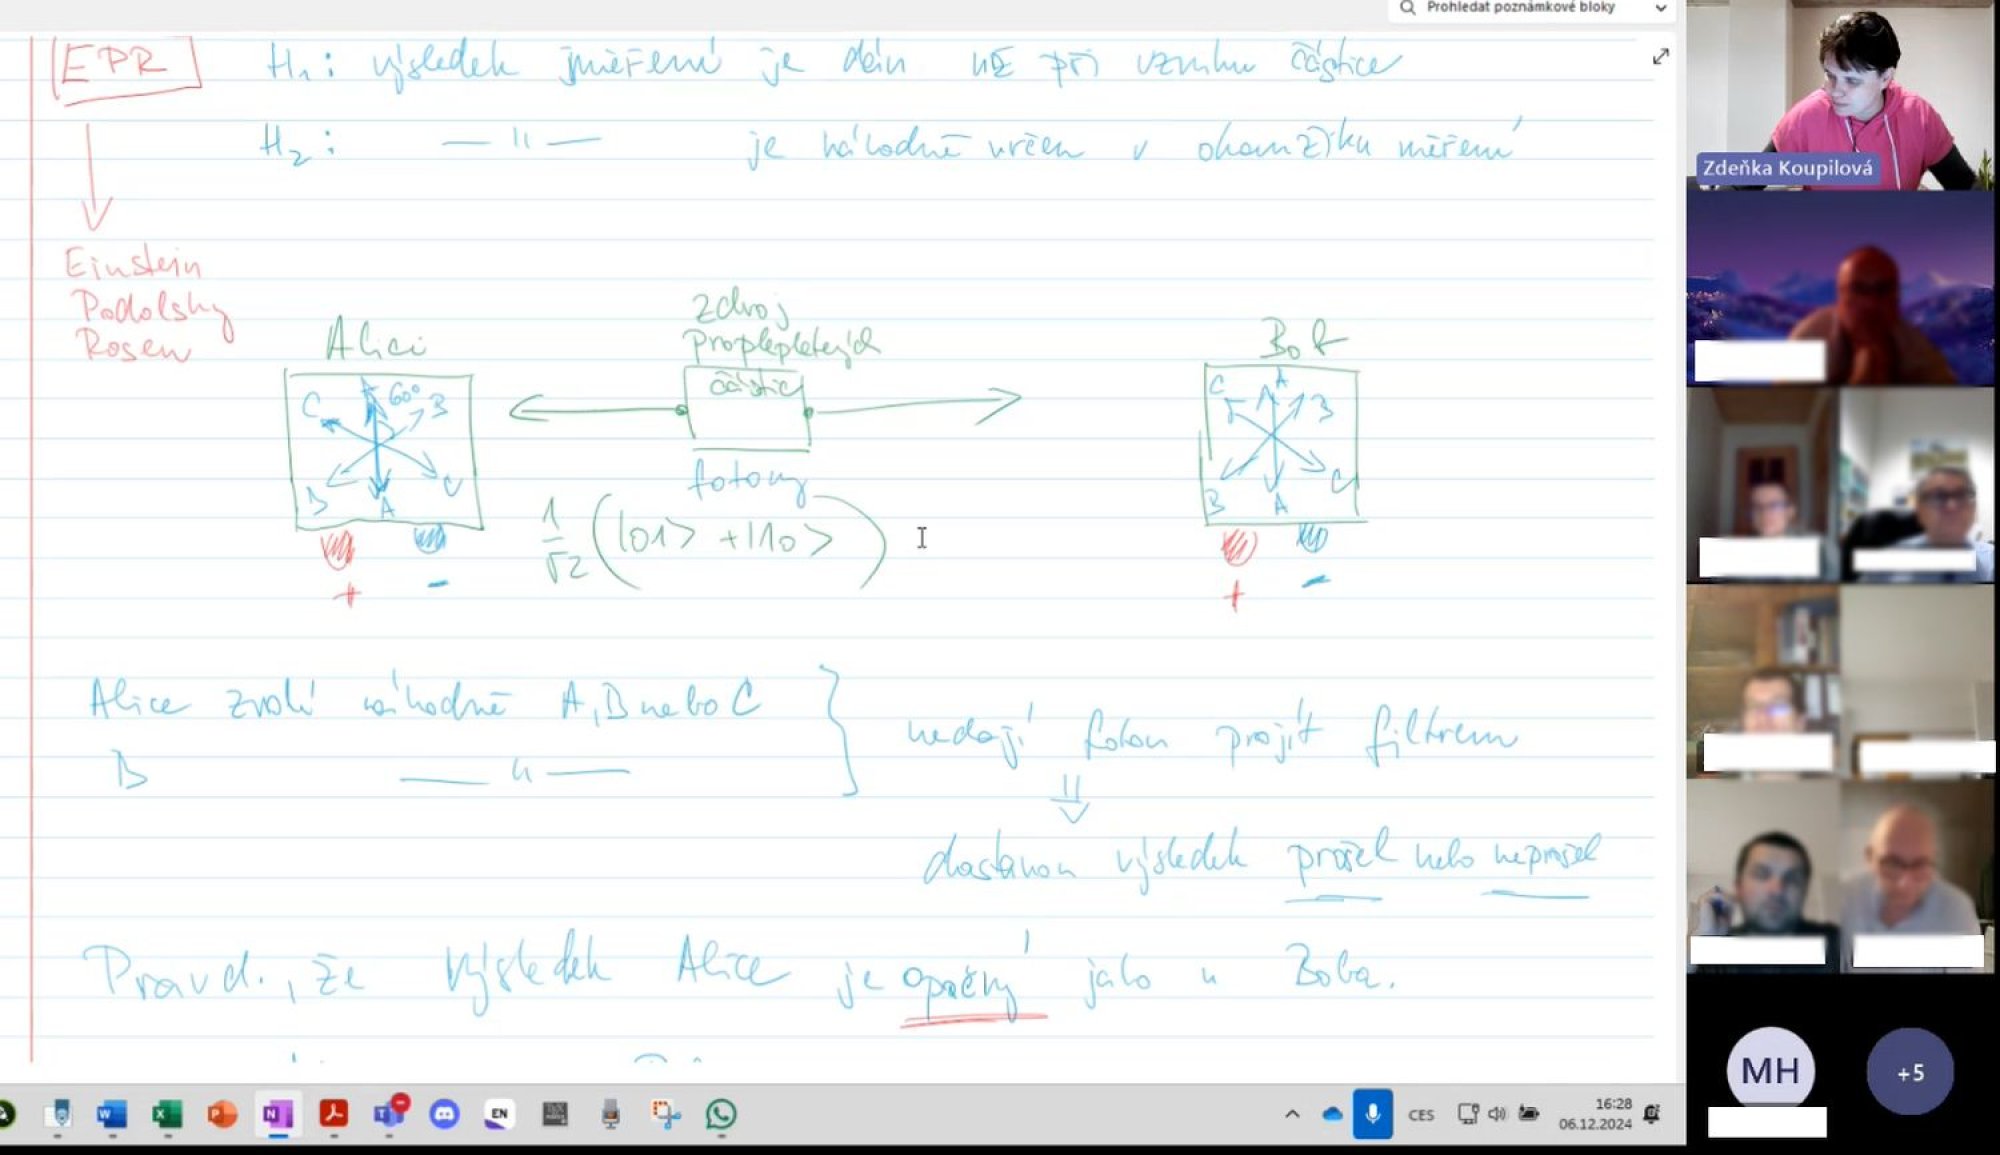 Prohledat poznámkové bloky
EPR H₁: výsledek měření je dán už při vzniku částice
H₂: — ıı — je náhodně určen v okamžiku měření
Einstein
Podolsky
Rosen
Alici
zdroj
proplepletených
částic
Bob
C A 60° B
B A C
C A B
B A C
fotony
1/√2 (|01> + |10>)
+ -
+ -
Alice zvolí náhodně A, B nebo C
B — ıı —
nedají foton projít filtrem
⇓
dostanou výsledek prošel nebo neprošel
Pravd., že výsledek Alice je opačný jako u Boba.
Zdeňka Koupilová
MH
+5
EN
CES
16:28
06.12.2024